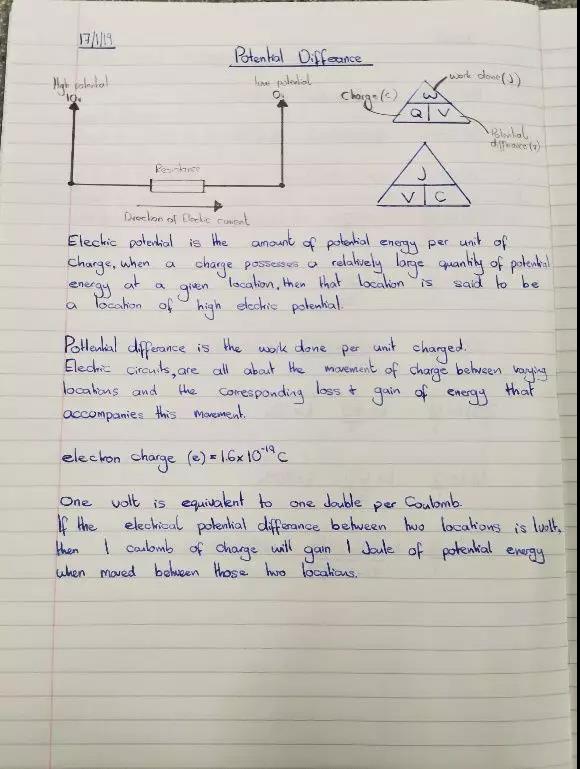 17/1/19
Potential Differance
High potential
10v
low potential
0v
Resistance
Direction of Electric current
work done (J)
Charge (c)
W
Q V
Potential
differance (v)
J
V C
Electric potential is the amount of potential energy per unit of
charge, when a charge possesses a relatively large quantity of potential
energy at a given location, then that location is said to be
a location of high electric potential.
Pottential differance is the work done per unit charged.
Electric circuits, are all about the movement of charge between varying
locations and the corresponding loss + gain of energy that
accompanies this movement.
electron charge (e) = 1.6x10⁻¹⁹C
One volt is equivalent to one Jouble per Coulomb.
If the electrical potential differance between two locations is 1volt,
then 1 coulomb of charge will gain 1 Joule of potential energy
when moved between those two locations.